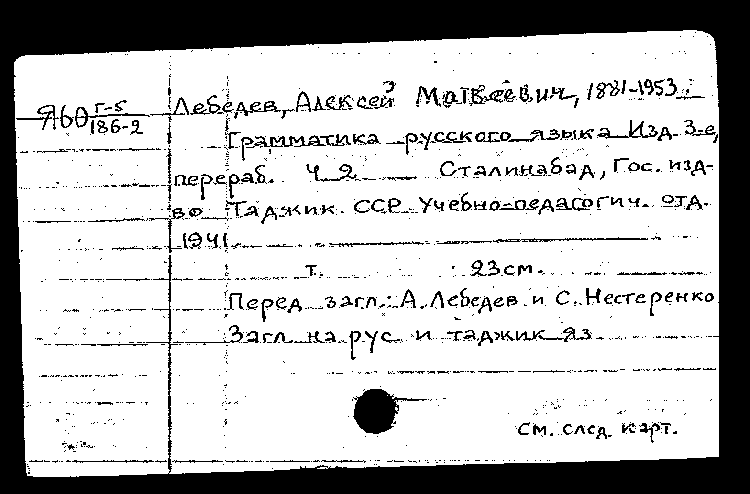 Яб0 Г-5/186-2
Лебедев, Алексей Матвеевич, 1881-1953.
Грамматика русского языка Изд. 3-е,
перераб. Ч 2 Сталинабад, Гос. изд-
во Таджик. ССР. Учебно-педагогич. отд.
1941
т. 23 см.
Перед загл.: А. Лебедев и С. Нестеренко
Загл. на рус и таджик яз.
см. след. карт.